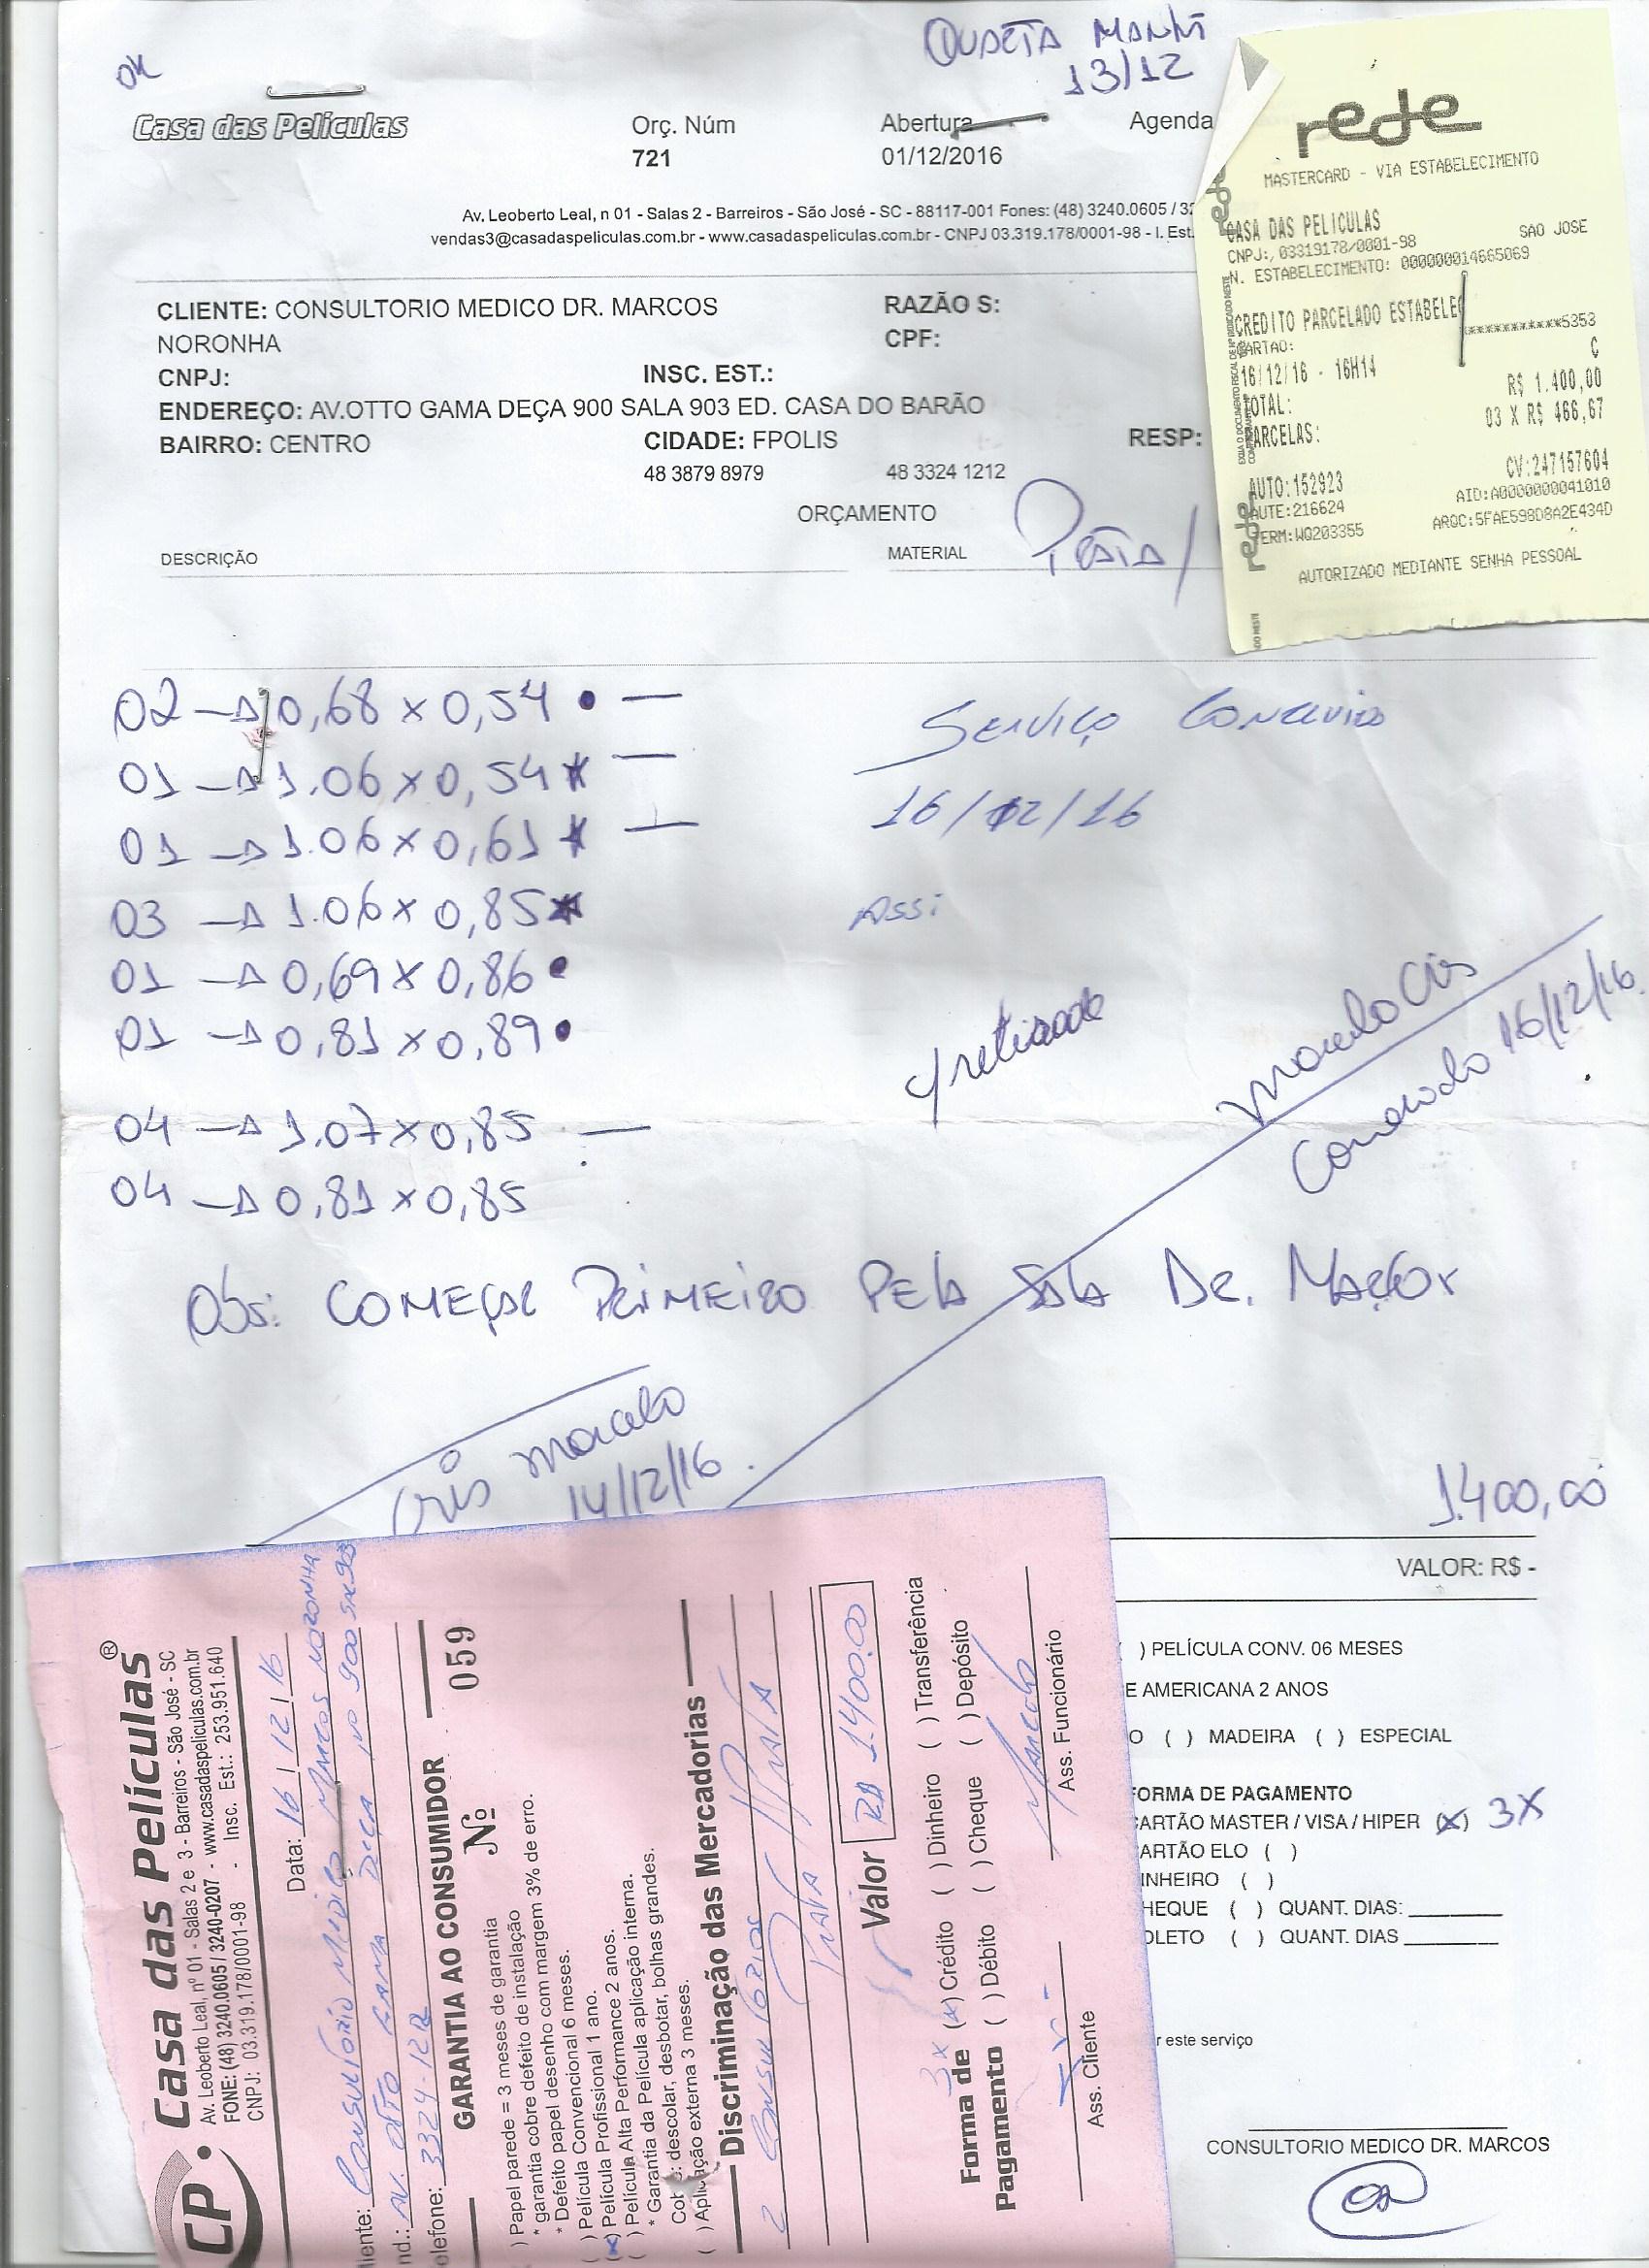 OK
QUARTA MANHÃ
13/12
Casa das Películas
Orç. Núm
721
Abertura
01/12/2016
Agenda
Av. Leoberto Leal, n 01 - Salas 2 - Barreiros - São José - SC - 88117-001 Fones: (48) 3240.0605 / 32
vendas3@casadaspeliculas.com.br - www.casadaspeliculas.com.br - CNPJ 03.319.178/0001-98 - I. Est.
CLIENTE: CONSULTORIO MEDICO DR. MARCOS
NORONHA
RAZÃO S:
CPF:
CNPJ:
INSC. EST.:
ENDEREÇO: AV.OTTO GAMA DEÇA 900 SALA 903 ED. CASA DO BARÃO
BAIRRO: CENTRO
CIDADE: FPOLIS
RESP:
48 3879 8979
48 3324 1212
ORÇAMENTO
DESCRIÇÃO
MATERIAL
PRATA/
rede
MASTERCARD - VIA ESTABELECIMENTO
CASA DAS PELICULAS
CNPJ: 03319178/0001-98
SAO JOSE
N. ESTABELECIMENTO: 000000014665069
CREDITO PARCELADO ESTABELEC
CARTAO:
************5353
16/12/16 - 16H14
C
TOTAL:
R$ 1.400,00
PARCELAS:
03 X R$ 466,67
AUTO:152923
CV:247157604
AUTE:216624
AID:A0000000041010
TERM:WQ203355
ARQC:5FAE598D8A2E434D
AUTORIZADO MEDIANTE SENHA PESSOAL
02 → 0,68 x 0,54 • —
01 → 1.06 x 0,54 * —
01 → 1.06 x 0,61 * —
03 → 1.06 x 0,85 *
01 → 0,69 x 0,86 •
01 → 0,81 x 0,89 •
04 → 1.07 x 0,85 —
04 → 0,81 x 0,85
Serviço Concluido
16/12/16
Assi
retirado
Marcelo Cris
16/12/16.
Obs: COMEÇAR PRIMEIRO PELA SALA DR. MARCOS
Cris Marcelo
14/12/16.
1.400,00
VALOR: R$ -
) PELÍCULA CONV. 06 MESES
E AMERICANA 2 ANOS
O ( ) MADEIRA ( ) ESPECIAL
FORMA DE PAGAMENTO
CARTÃO MASTER / VISA / HIPER (X) 3X
CARTÃO ELO ( )
INHEIRO ( )
HEQUE ( ) QUANT. DIAS:
OLETO ( ) QUANT. DIAS
r este serviço
CONSULTORIO MEDICO DR. MARCOS
CP
Casa das Películas®
Av. Leoberto Leal, nº 01 - Salas 2 e 3 - Barreiros - São José - SC
FONE: (48) 3240.0605 / 3240-0207 - www.casadaspeliculas.com.br
CNPJ: 03.319.178/0001-98 - Insc. Est.: 253.951.640
Data: 16 / 12 / 16
liente: Consultorio Medico Marcos Noronha
nd.: AV. OTTO GAMA DECA Nº 900 SALA 903
elefone: 3324-1212
GARANTIA AO CONSUMIDOR
Nº 059
) Papel parede = 3 meses de garantia
* garantia cobre defeito de instalação
* Defeito papel desenho com margem 3% de erro.
( ) Película Convencional 6 meses.
(x) Película Profissional 1 ano.
( ) Película Alta Performance 2 anos.
* Garantia da Película aplicação interna.
descolar, desbotar, bolhas grandes.
( ) Aplicação externa 3 meses.
Discriminação das Mercadorias
2 Consultorios Prata
Prata
Valor R$ 1.400,00
Forma de Pagamento
3x (x) Crédito ( ) Dinheiro ( ) Transferência
( ) Débito ( ) Cheque ( ) Depósito
Marcelo
Ass. Cliente
Ass. Funcionário